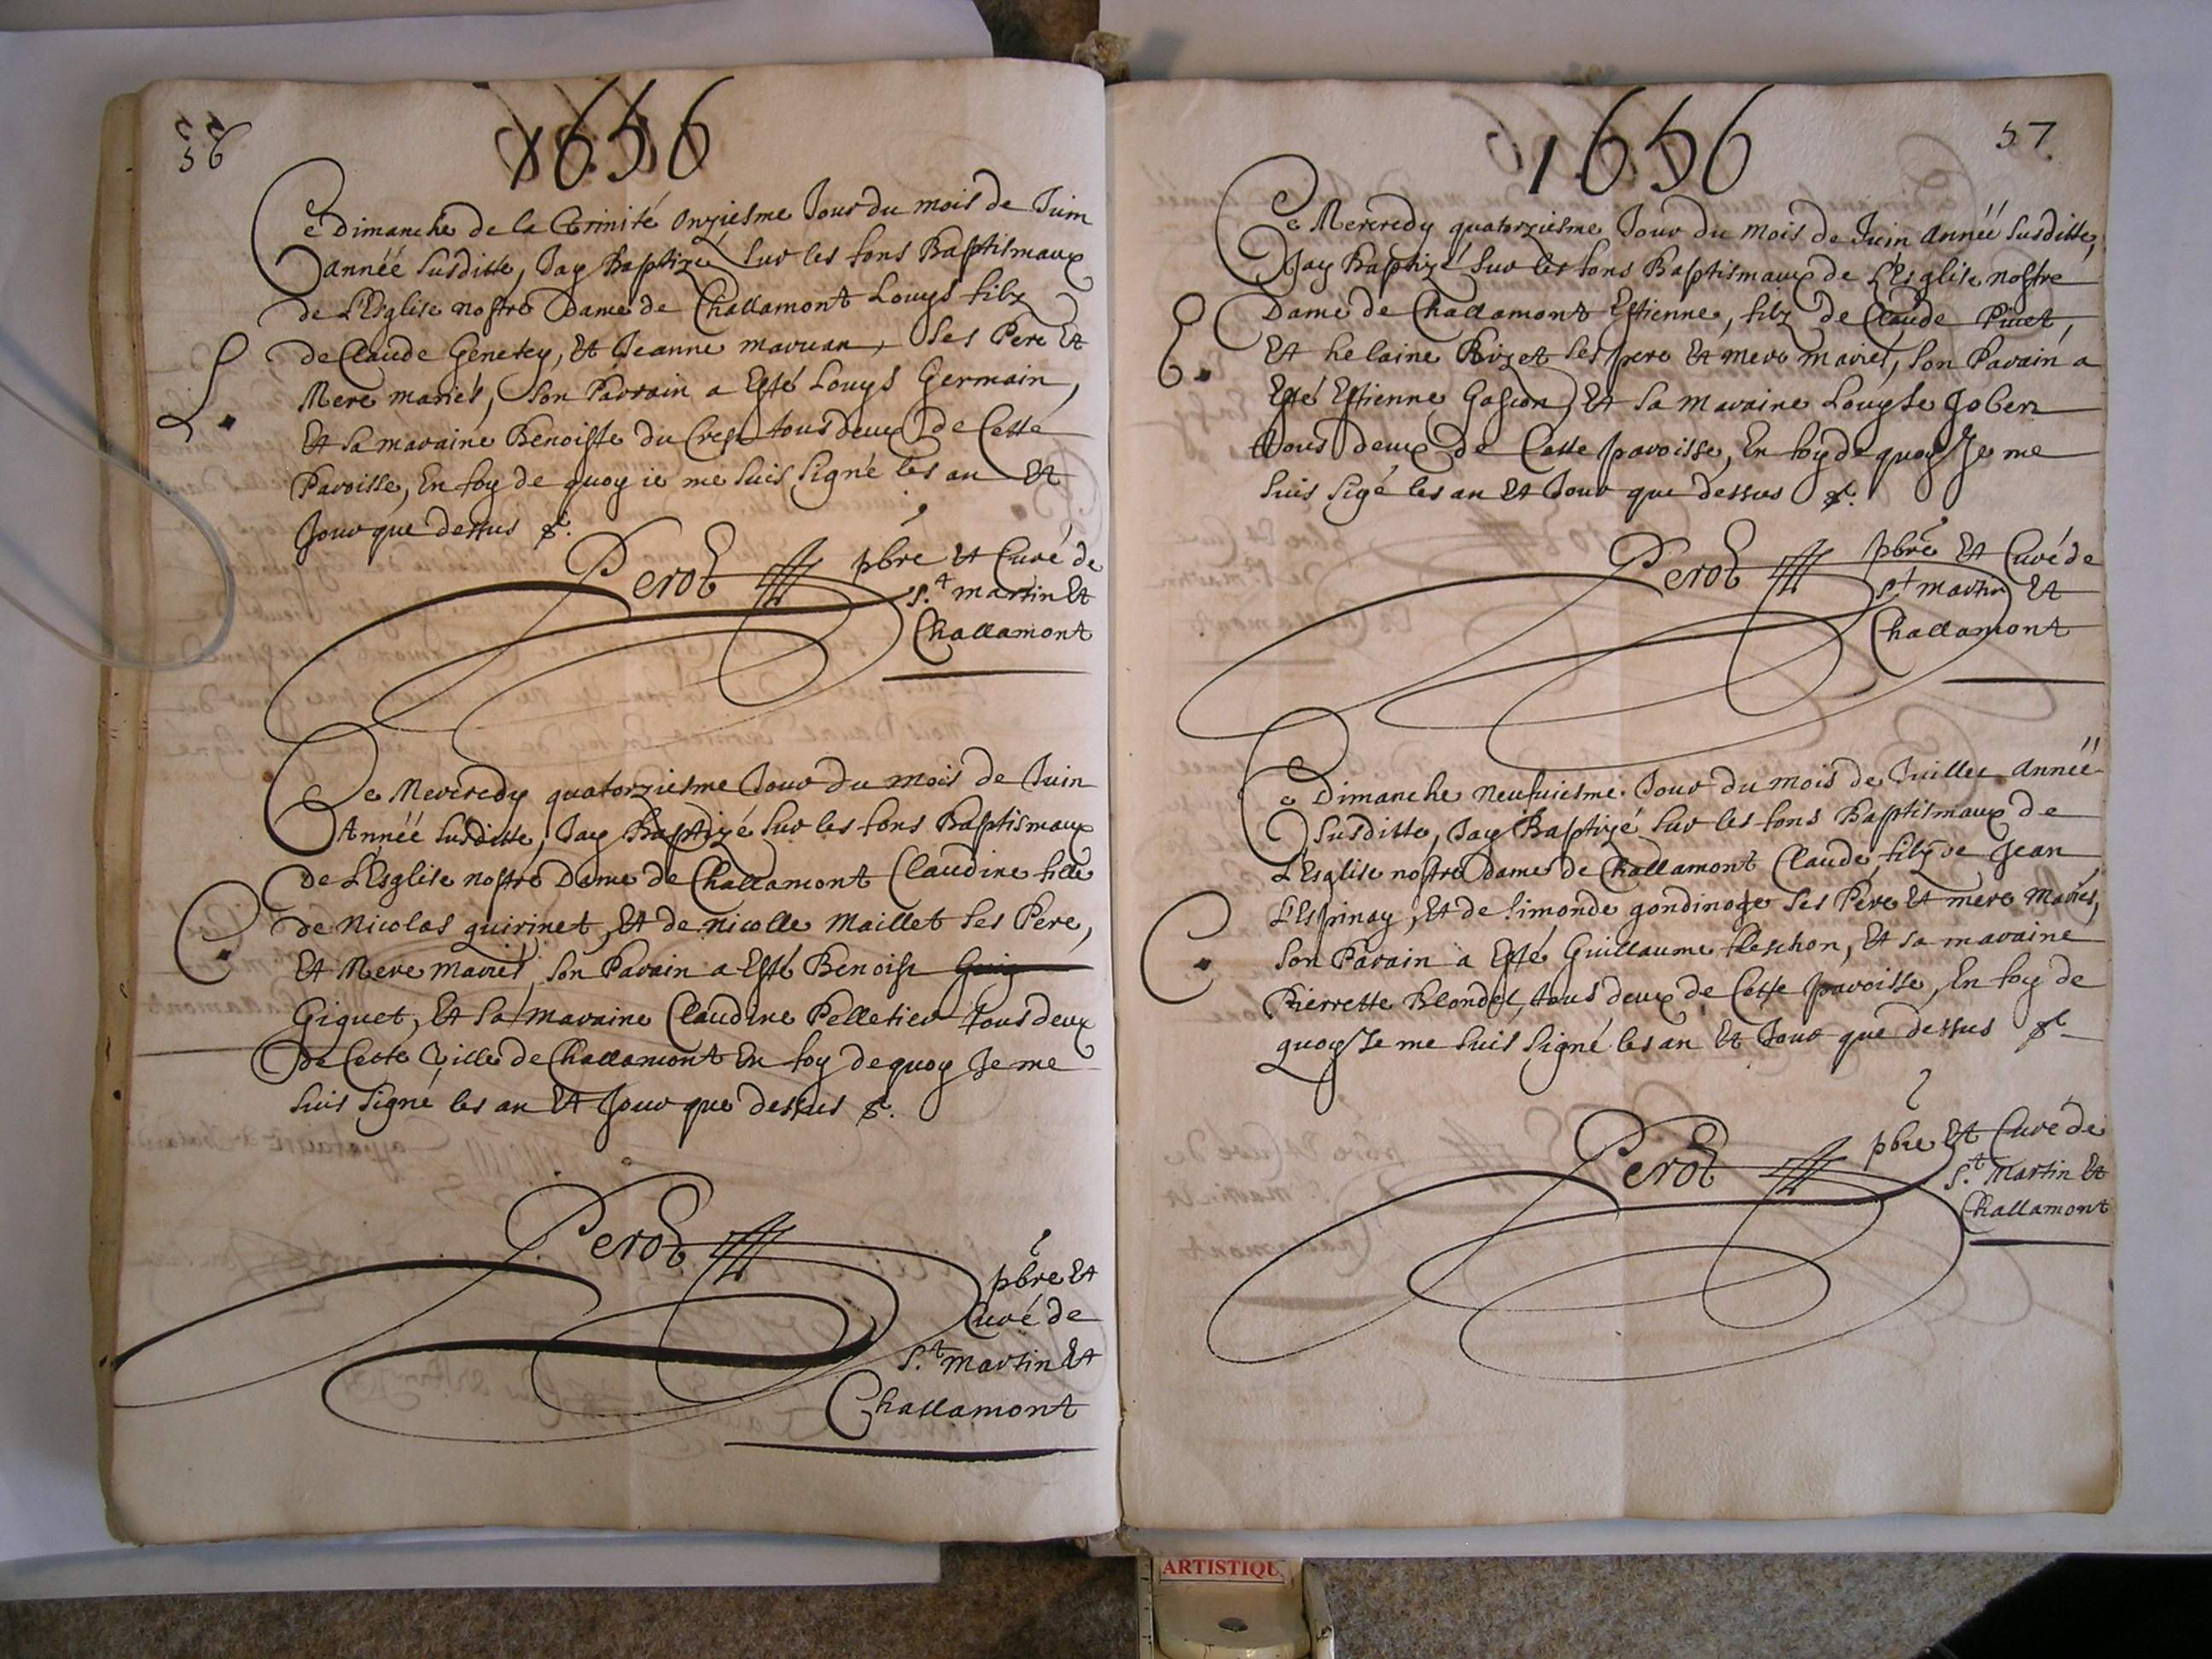 56
1656
Ce Dimanche de la Trinité Onziesme Jour du mois de Juin
année susditte, Jay Baptizé sur les fons Baptismaux
de L'Esglise nostre Dame de Challamont Louys filz
de Claude Genetey, Et Jeanne maruan, ses Pere Et
Mere mariés, son Parrain a Esté Louys Germain,
Et sa maraine Benoiste du Crest tous deux de Cette
Paroisse, En foy de quoy ie me suis signé les an Et
Jour que dessus &.
L.
Perot pbre Et Curé de
S.t martin Et
Challamont
Ce Mercredy quatorziesme Jour du mois de Juin
Année susditte, Jay Baptizé sur les fons Baptismaux
de L'Esglise nostre Dame de Challamont Claudine fille
de Nicolas quirinet, Et de nicolle Maillet ses Pere,
Et Mere mariés, son Parain a Esté Benoist Guig
Giguet, Et sa maraine Claudine Pelletier tous deux
de Cette Ville de Challamont En foy de quoy Je me
suis signé les an Et Jour que dessus &.
C.
Perot pbre Et
Curé de
S.t martin Et
Challamont
57
1656
Ce Mercredy quatorziesme Jour du mois de Juin année susditte,
Jay Baptizé sur les fons Baptismaux de L'Esglise nostre
Dame de Challamont Estienne, filz de Claude Piuet,
Et helaine Rizet ses pere Et mere mariés, son Parain a
Esté Estienne Gascon, Et sa maraine Louyse Jober
tous deux de Cette paroisse, En foy de quoy Je me
suis sigé les an Et Jour que dessus &.
E.
Perot pbre Et Curé de
S.t martin Et
Challamont
Ce Dimanche neufuiesme Jour du mois de Juillet année
susditte, Jay Baptizé sur les fons Baptismaux de
L'Esglise nostre Dame de Challamont Claude, filz de Jean
L'Espinay, Et de simonde gondinoge ses Pere Et mere mariés,
son Parain a Esté Guillaume fleschon, Et sa maraine
Pierrette Blondel, tous deux de Cette paroisse, En foy de
quoy Je me suis signé les an Et Jour que dessus &
C.
Perot pbre Et Curé de
S.t Martin Et
Challamont
ARTISTIQU